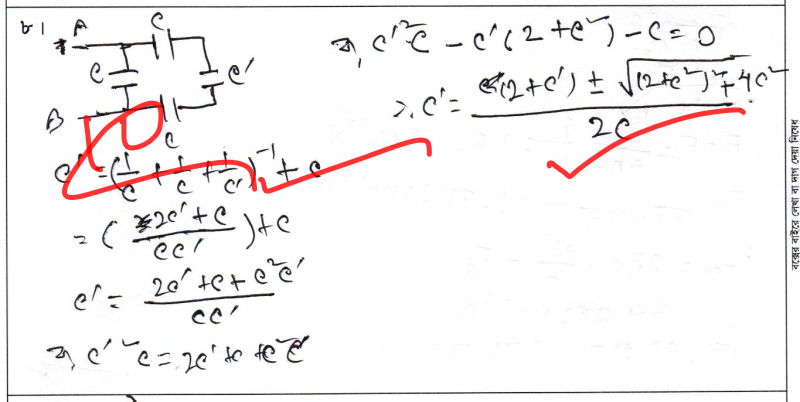 ৮। A C
C C'
B C
C' = (1/C + 1/C + 1/C')⁻¹ + C
= (2C' + C / CC') + C
C' = 2C' + C + C²C' / CC'
⇒, C'²C = 2C' + C + C²C'
⇒, C'²C - C'(2 + C²) - C = 0
∴, C' = (2 + C') ± √(2+C²)² + 4C² / 2C
বক্সের বাইরে লেখা বা দাগ দেয়া নিষেধ